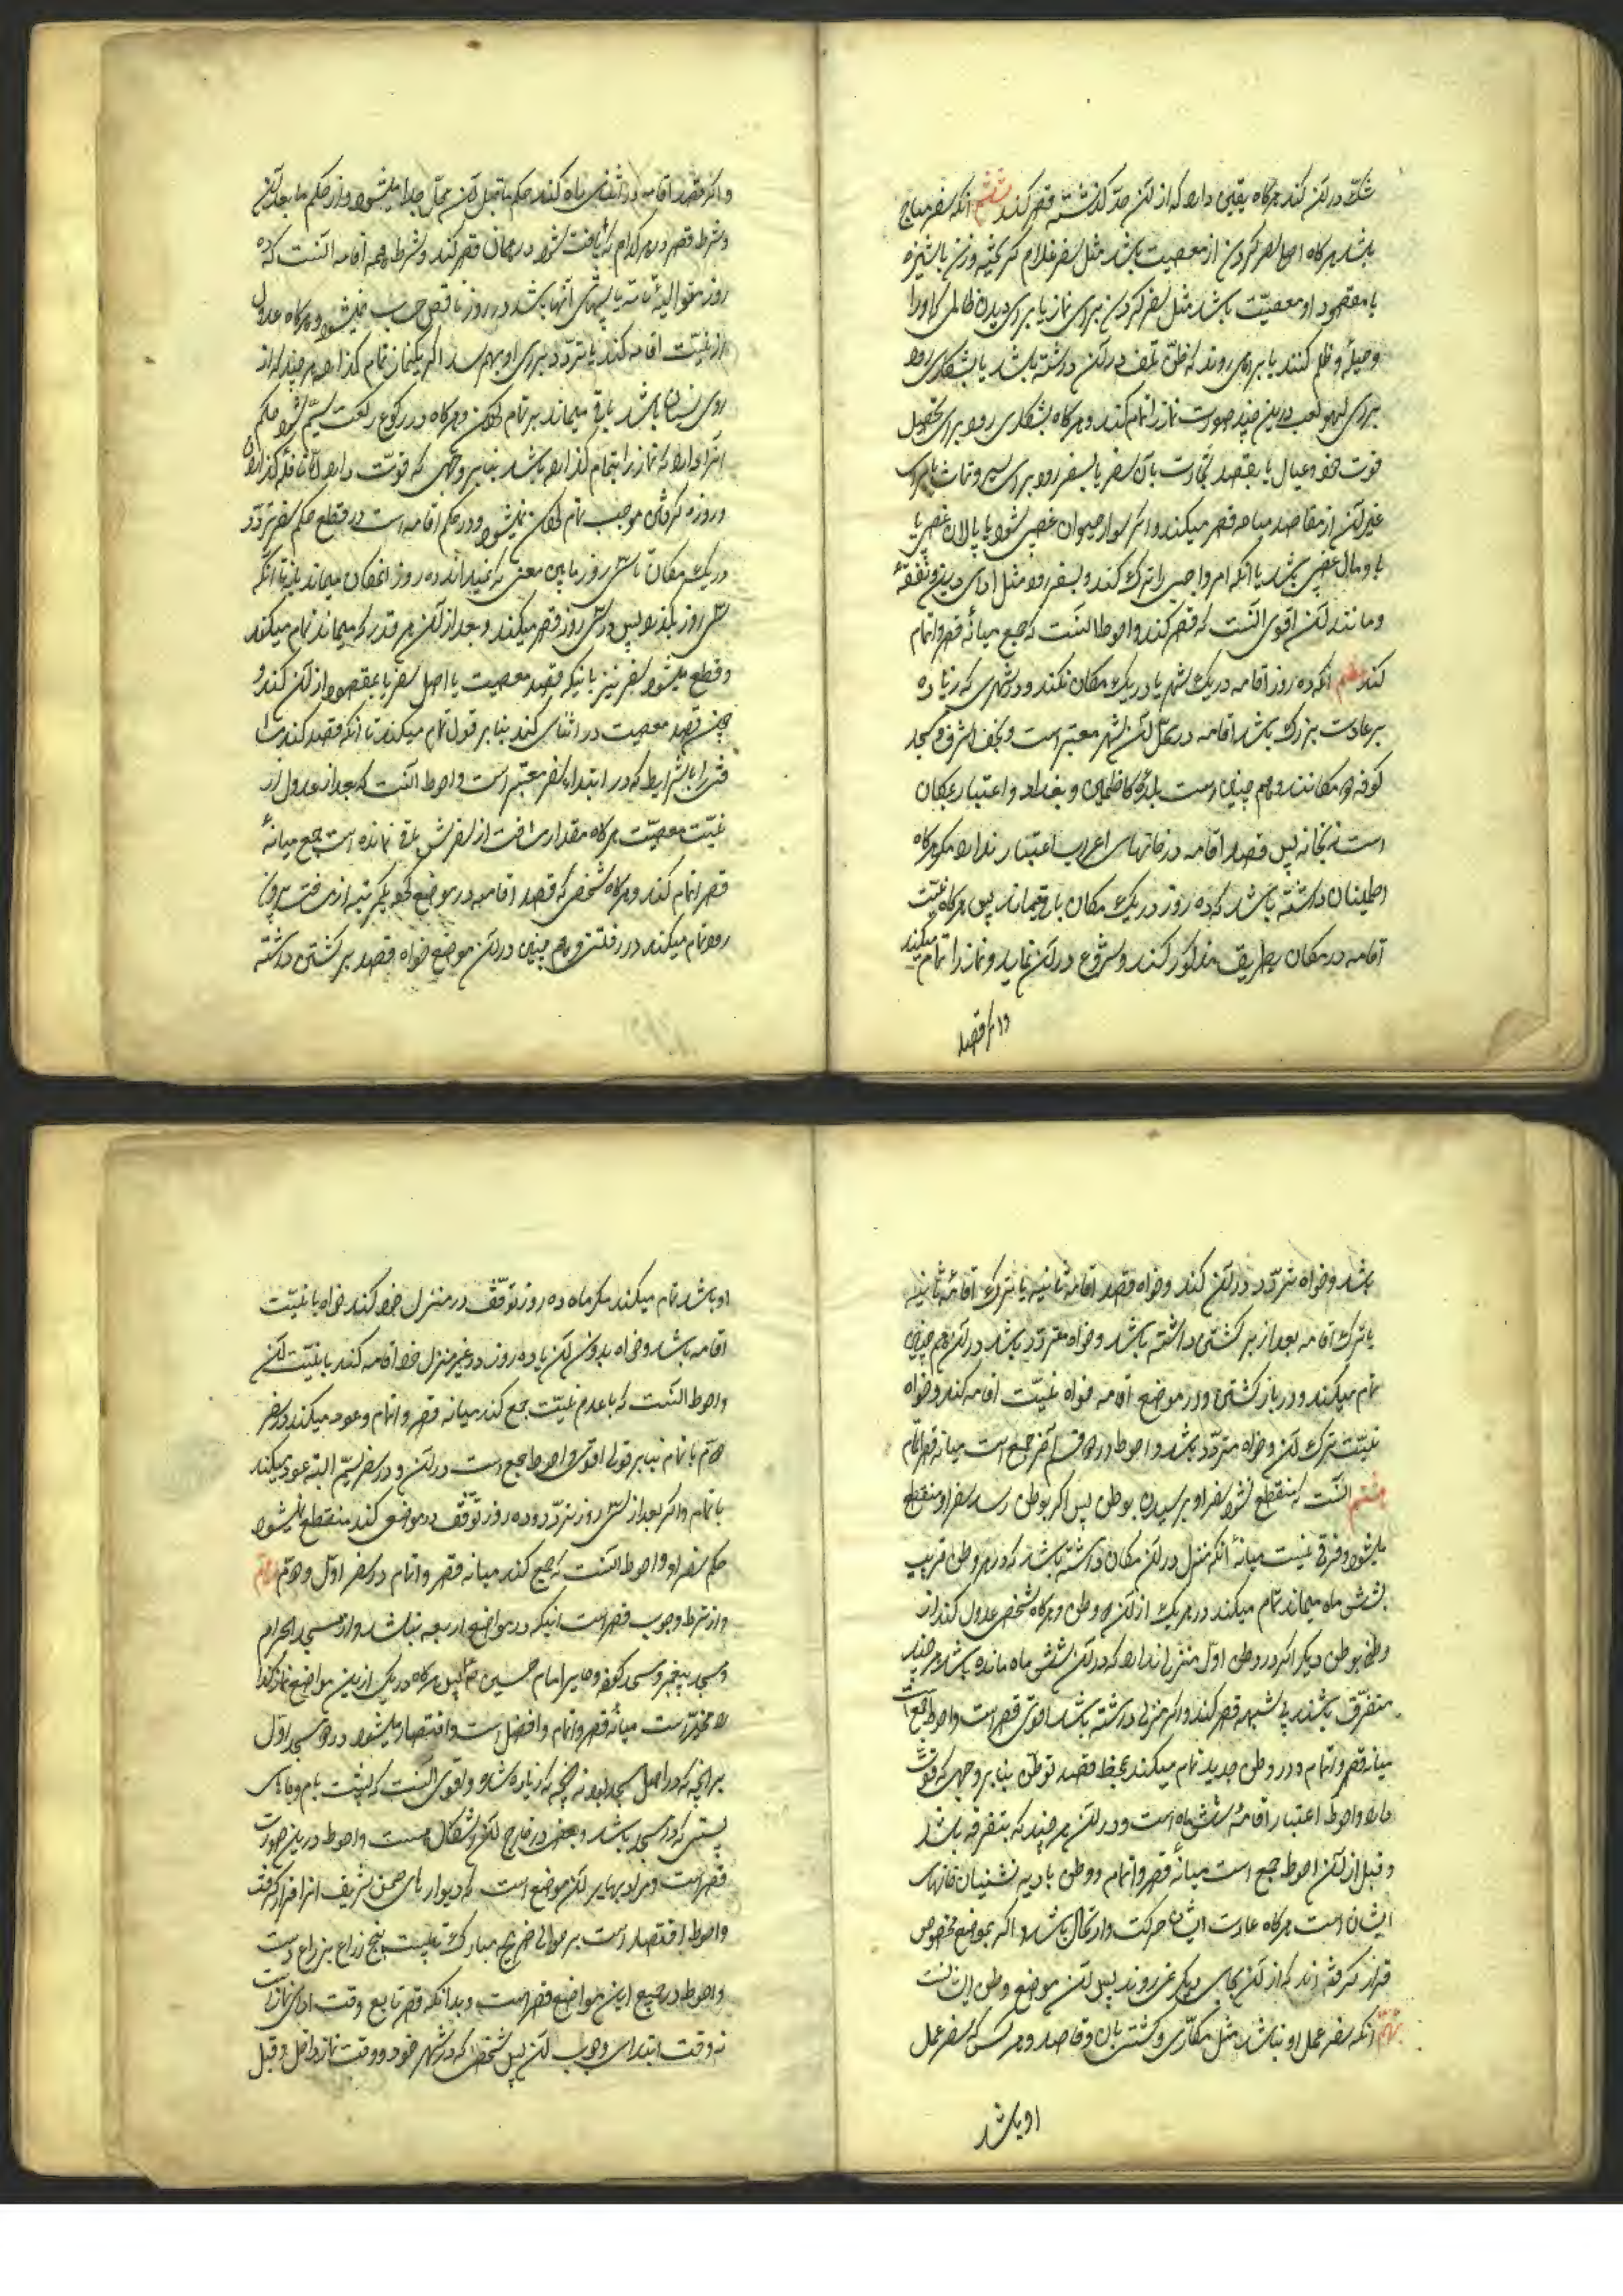 شک در آن کند هرگاه یقین دارد که از آن حد گذشته قصر کند ششم آنکه سفر مباح
باشد هرگاه اصل سفر کردن از معصیت باشد مثل سفر غلام گریخته و زن ناشزه
یا مقصود او معصیت باشد مثل سفر کردن برای نماز یا برای دیدن ظالمی که او را
و ظلم کنند یا براهی روند که ظن تلف در آن داشته باشد یا بشکاری رود
برای لهو و لعب درین چند صورت نماز را تمام کند و هرگاه بشکاری رود برای تحصیل
قوت خود و عیال یا بقصد تجارت بآن سفر یا بسفر رود برای سیر و تماشا یا برای
غیر آن از مقاصد مباحه قصر میکند و اگر سوار حیوان غصبی شود یا پالان غصبی یا
با او مال غصبی باشد یا آنکه امر واجبی را ترک کند و بسفر رود مثل ادای دین و نفقه
و مانند آن اقوی آنست که قصر کند و احوط آنست که جمع میانه قصر و اتمام
کند هفتم آنکه ده روز اقامه در یک شهر یا در یک مکان نکند و در شهری که زیاده
بر عادت بزرگ باشد اقامه در محل آن شهر معتبر است و نجف اشرف و مسجد
کوفه دو مکانند و هم چنین است بلده کاظمین و بغداد و اعتبار بمکان
است نه بخانه پس قصد اقامه در خانهای اعراب اعتبار ندارد مگر هرگاه
اطمینان داشته باشد که ده روز در یک مکان باقی میمانند پس هرگاه نیت
اقامه در مکان بطریق مذکور کند و شروع در آن نماید و نماز را تمام میکند
و اگر قصد
و اگر قصد اقامه در اثنای راه کند حکم ماقبل آن محل جدا میشود و از حکم مابعد آن
و شرط قصر در هر کدام که یافت شود در همان قصر کند و شرط همه اقامه آنست که ده
روز متوالیه تامه با شبهای آنها باشد و روز ناقص حساب نمیشود و هرگاه عدول
از نیت اقامه کند یا تردد برای او بهم رسد اگر یکنماز تمام گذارده هر چند که از
روی نسیان باشد باقی میماند بر تمام کردن و هرگاه در رکوع رکعت سیم شود حکم
آنرا دارد که نماز را بتمام گذارده باشد بنابر وجهی که قوت دارد اما نافله گذاردن
و روزه گرفتن موجب تمام کردن نمیشود و در حکم اقامه است در قطع حکم سفر تردد
در یک مکان تا سی روز باین معنی که نمیداند ده روز در آنمکان میماند یا نه تا آنکه
سی روز بگذرد پس در سی روز قصر میکند و بعد از آن هر قدر که میماند تمام میکند
و قطع میشود سفر نیز بآنکه قصد معصیت یا اصل سفر یا بمقصود از آن کند و
چون قصد معصیت در اثنای کند بنابر قول تمام میکند تا آنکه قصد کند مسا
فتی را با شرایط که در ابتداء سفر معتبر است و احوط آنست که بعد از عدول از
نیت معصیت هرگاه مقدار مسافت از سفرش باقی نمانده است جمع میانه
قصر و اتمام کند و هرگاه شخص که قصد اقامه در موضعی کند یکمرتبه از مسافت بیرون
رود تمام میکند در رفتن و هم چنین در آن موضع خواه قصد برگشتن داشته
باشد و خواه تردد در آن کند و خواه قصد اقامه ثانیه یا بترک اقامه ثانیه
یا ترک اقامه بعد از برگشتن داشته باشد و خواه متردد باشد در آن هم چنین
تمام میکند و در بازگشتن و در موضع اقامه خواه نیت اقامه کند و خواه
نیت ترک آن و خواه متردد باشد و احوط در دو قسم آخر جمع است میانه قصر و اتمام
هشتم آنست که منقطع نشود سفر او برسیدن بوطن پس اگر بوطن رسد سفر او منقطع
میشود و فرقی نیست میانه آنکه منزل در آن مکان داشته باشد که در هر وطن قریب
بشش ماه میماند تمام میکند در هر یک از آن دو وطن و هرگاه شخص عدول کند از
وطن بوطن دیگر اگر در وطن اول منزلی ندارد که در آن شش ماه مانده باشد هر چند
متفرق باشند بی شبهه قصر کند و اگر منزلی داشته باشد اقوی قصر است و احوط جمع است
میانه قصر و اتمام و در وطن جدید تمام میکند بمحض قصد توطن بنابر وجهی که قوت
دارد و احوط اعتبار اقامه شش ماه است و در آن هر چند که بتفرقه باشد
و قبل از آن احوط جمع است میانه قصر و اتمام و وطن بادیه نشینان خانهای
ایشان است هرگاه عادت ایشان حرکت و ارتحال باشد و اگر بموضع مخصوص
قرار گرفته اند که از آن بجای دیگر نمی روند پس آن موضع وطن ایشانست
نهم آنکه سفر عمل او نباشد مثل مکاری و کشتیبان و قاصد و هر کس که سفر عمل
او باشد
او باشد تمام میکند مگر ماه ده روز توقف در منزل خود کند خواه با نیت
اقامه باشد و خواه بدون آن یا ده روز در غیر منزل خود اقامه کند با نیت آن
و احوط آنست که با عدم نیت جمع کند میانه قصر و اتمام و عود میکند در سفر
دوم با تمام بنابر قولی اقوی و احوط جمع است در آن و در سفر سیم البته عود میکند
با تمام و اگر بعد از سی روز تردد ده روز توقف در موضعی کند منقطع میشود
حکم سفر او و احوط آنست که جمع کند میانه قصر و اتمام در سفر اول و دوم
و از شرط وجوب قصر است اینکه در مواضع اربعه نباشد و از مسجد الحرام
و مسجد پیغمبر و مسجد کوفه و حایر امام حسین پس هرگاه در یکی ازین مواضع نماز کند
مخیر است میانه قصر و اتمام و افضل است و اقتصار میشود در دو مسجد اول
بر آنچه که در اصل مسجد بود نه آنچه که زیاده شد و اقوی آنست که پشت بام و جاهای
پستی که در مسجد باشد و بعض در خارج آن و اشکال هست و احوط در این صورت
قصر است و مراد بحایر آن موضع است که دیوارهای صحن شریف آنرا فرا گرفته
و احوط اقتصار است بر حوالی ضریح مبارک تا بیست پنج ذراع بذراع دست
و احوط در جمیع این مواضع قصر است و بدانکه قصر تابع وقت ادای نماز است
نه وقت ابتدای وجوب آن پس شخص که در شهر خود و وقت نماز داخل و قبل